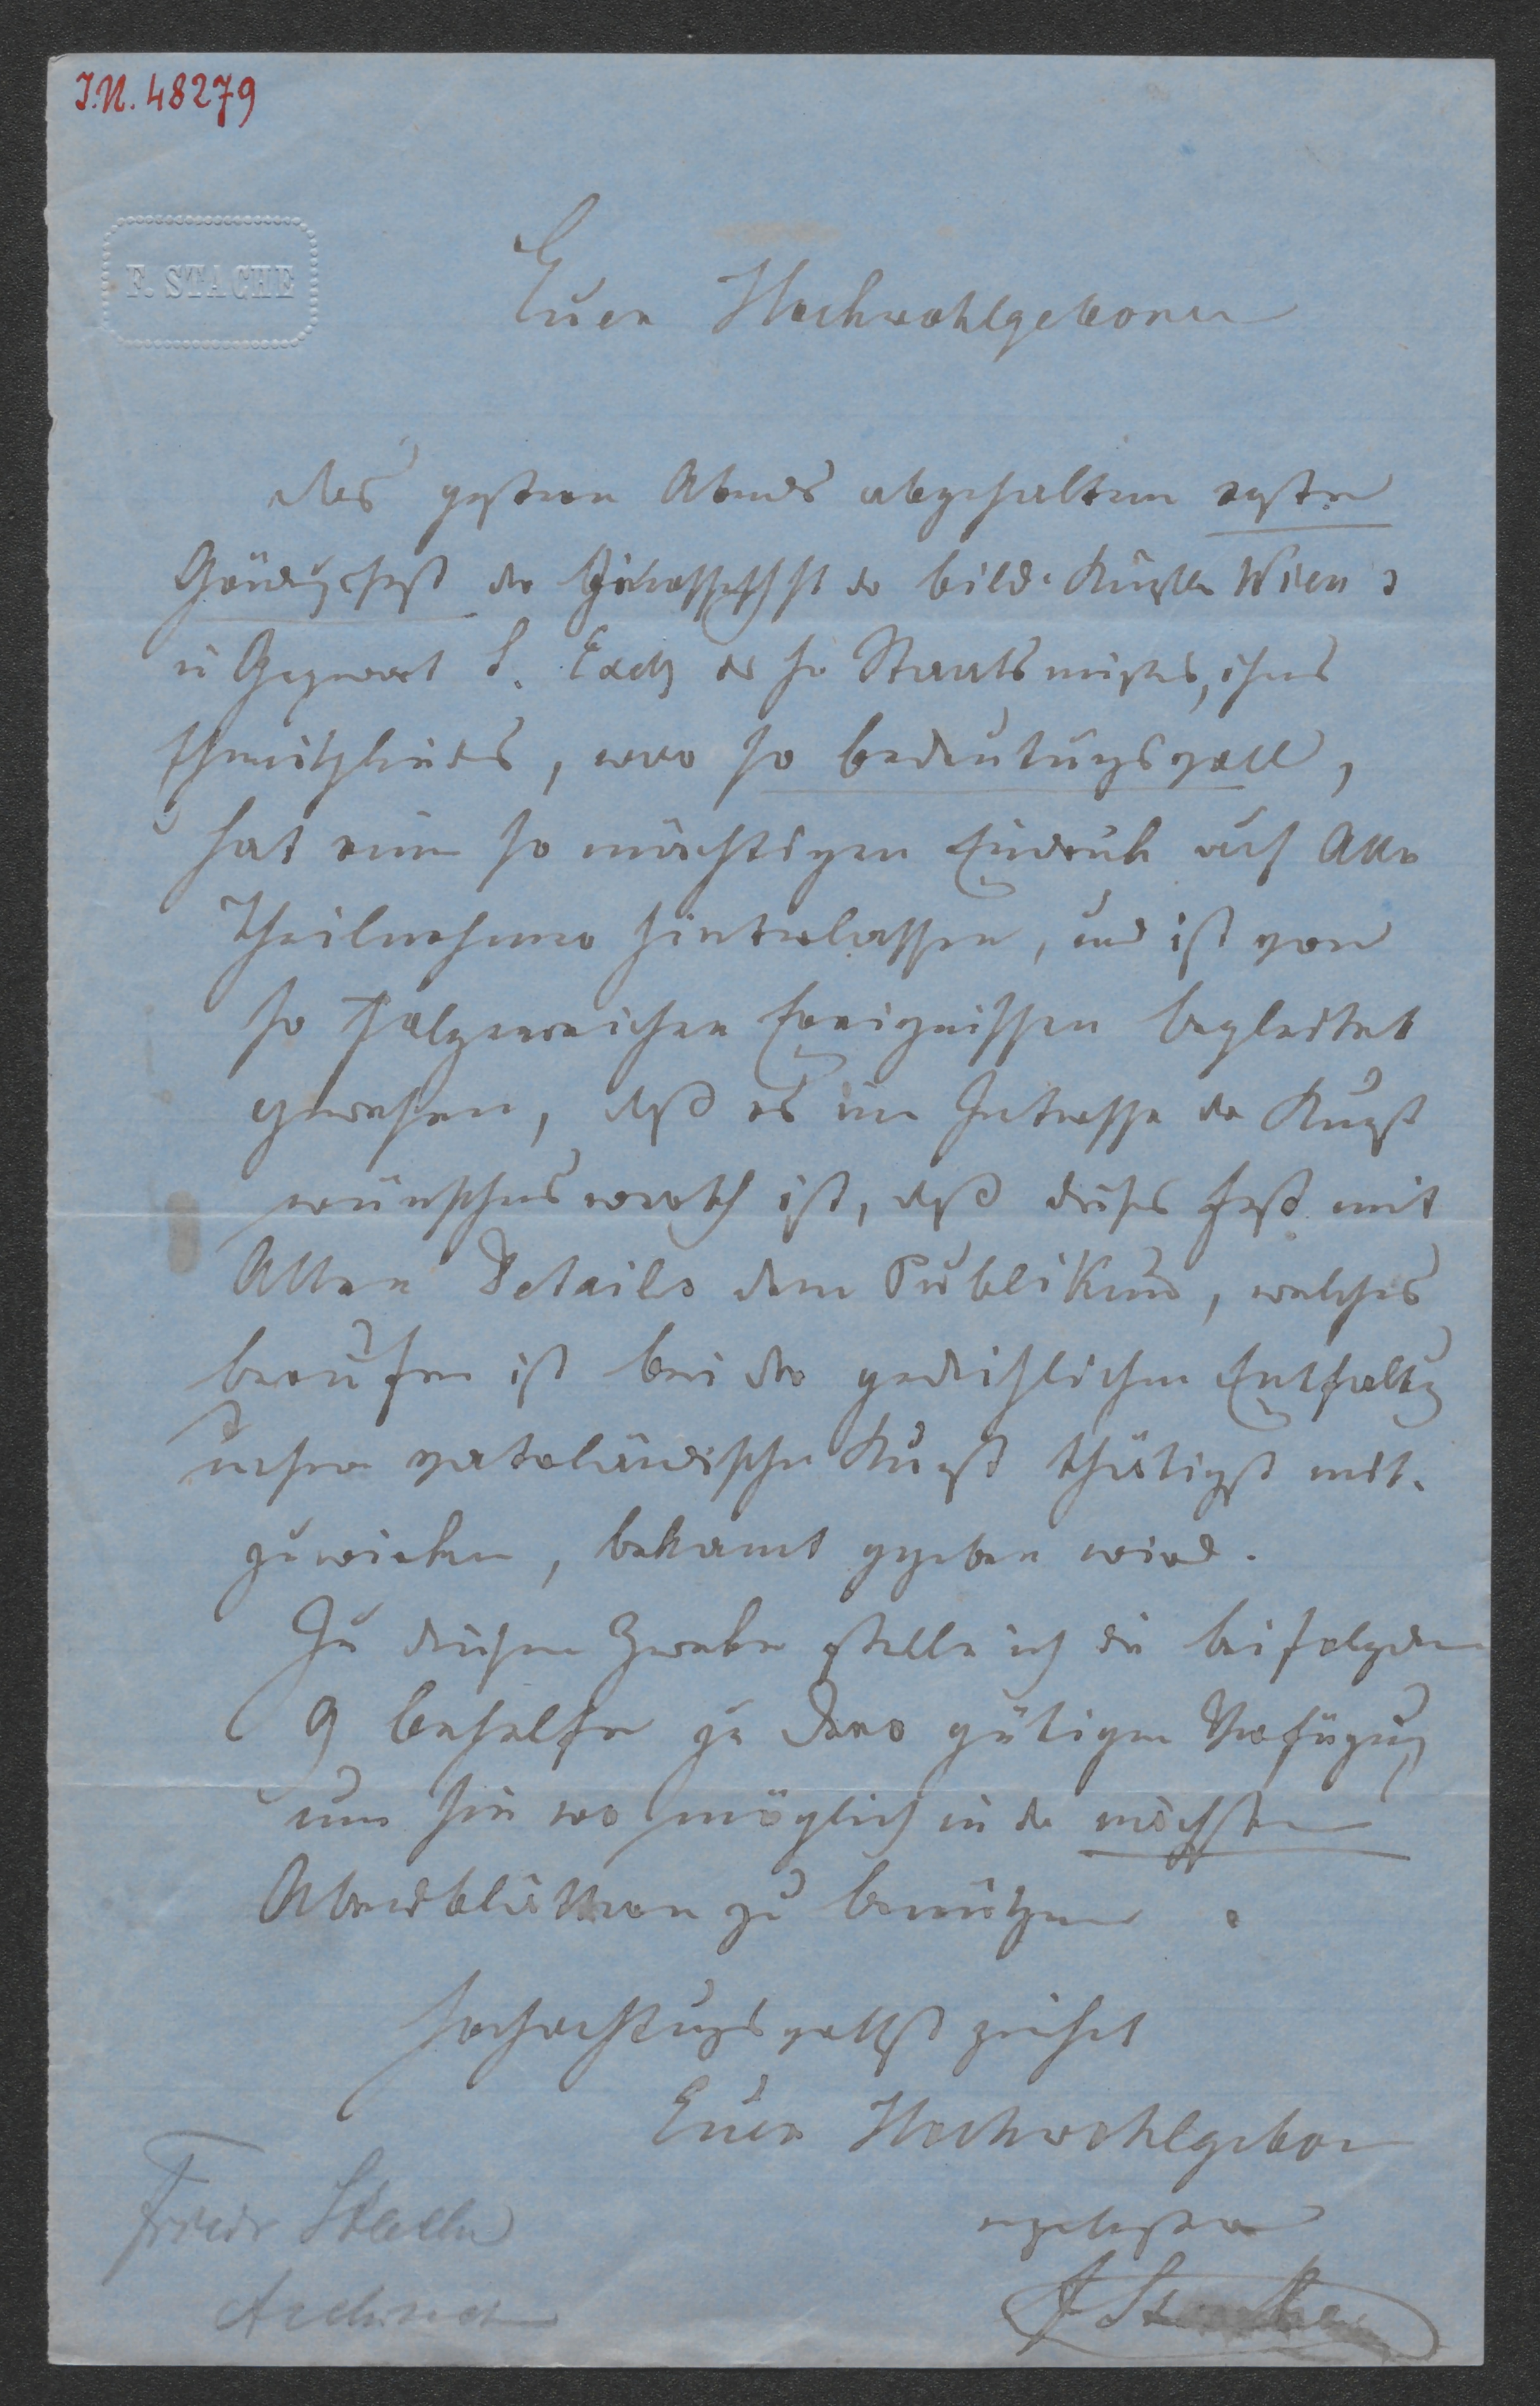 I.N. 48279
F. STACHE
Euer Hochwohlgeboren
das gestern Abends abgehaltene erste
Gründungsfest der Genossenschft der bild. Künstler Wien's
in Gegenwart S. Excllz des Hr Staatsministers, ihres
Ehrenmitgliedes, war so bedeutungsvoll,
hat einen so mächtigen Eindruck auf Alle
Theilnehmer hinterlassen, und ist von
so folgenreichen Ereignissen begleitet
gewesen, daß es im Interesse der Kunst
wünschenswerth ist, daß dieses Fest mit
Allen Details dem Publikum, welches
berufen ist bei der gedeihlichen Entfaltung
unserer vaterländischen Kunst thätigst mit-
zuwirken, bekannt gegeben wird.
Zu diesem Zwecke stelle ich die beifolgenden
9 Behelfe zu Dero gütigen Verfügung
um sie wo möglich in den nächsten
Abendblättern zu benützen.
Hochachtungsvollst zeichnet
Euer Hochwohlgeboren
ergebenster
F Stache
Friedr Stache
Architect